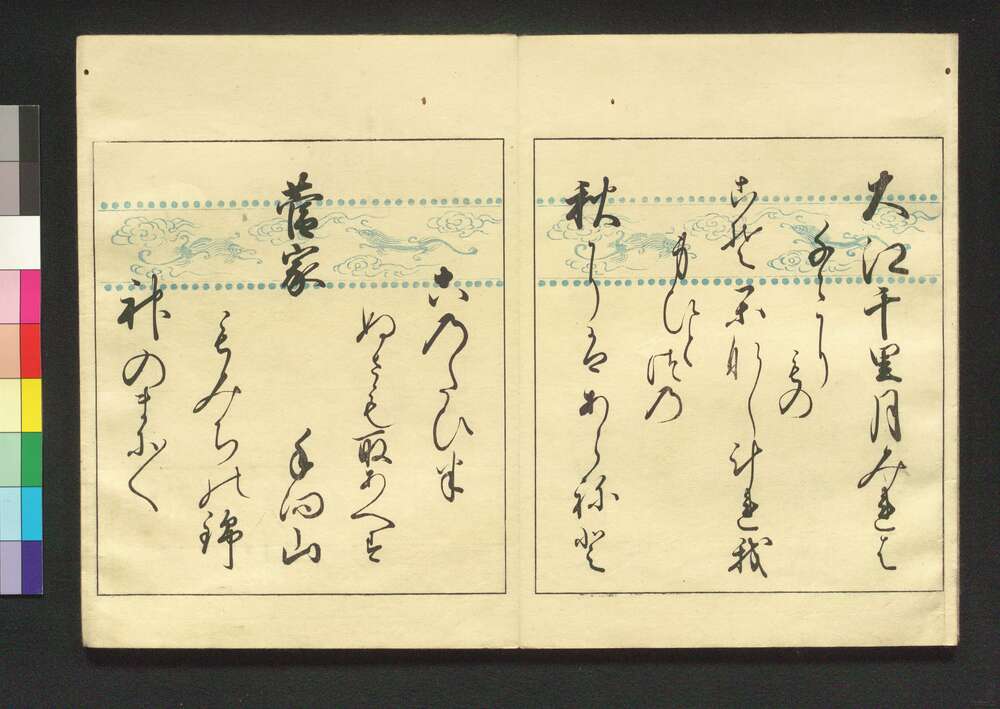 大江千里月みれは
ちゝに
もの
こそかなしけれ我
身ひとつの
秋にはあらねと
このたひは
ぬさも取あへす
菅家
手向山
もみちの錦
神のまに〱